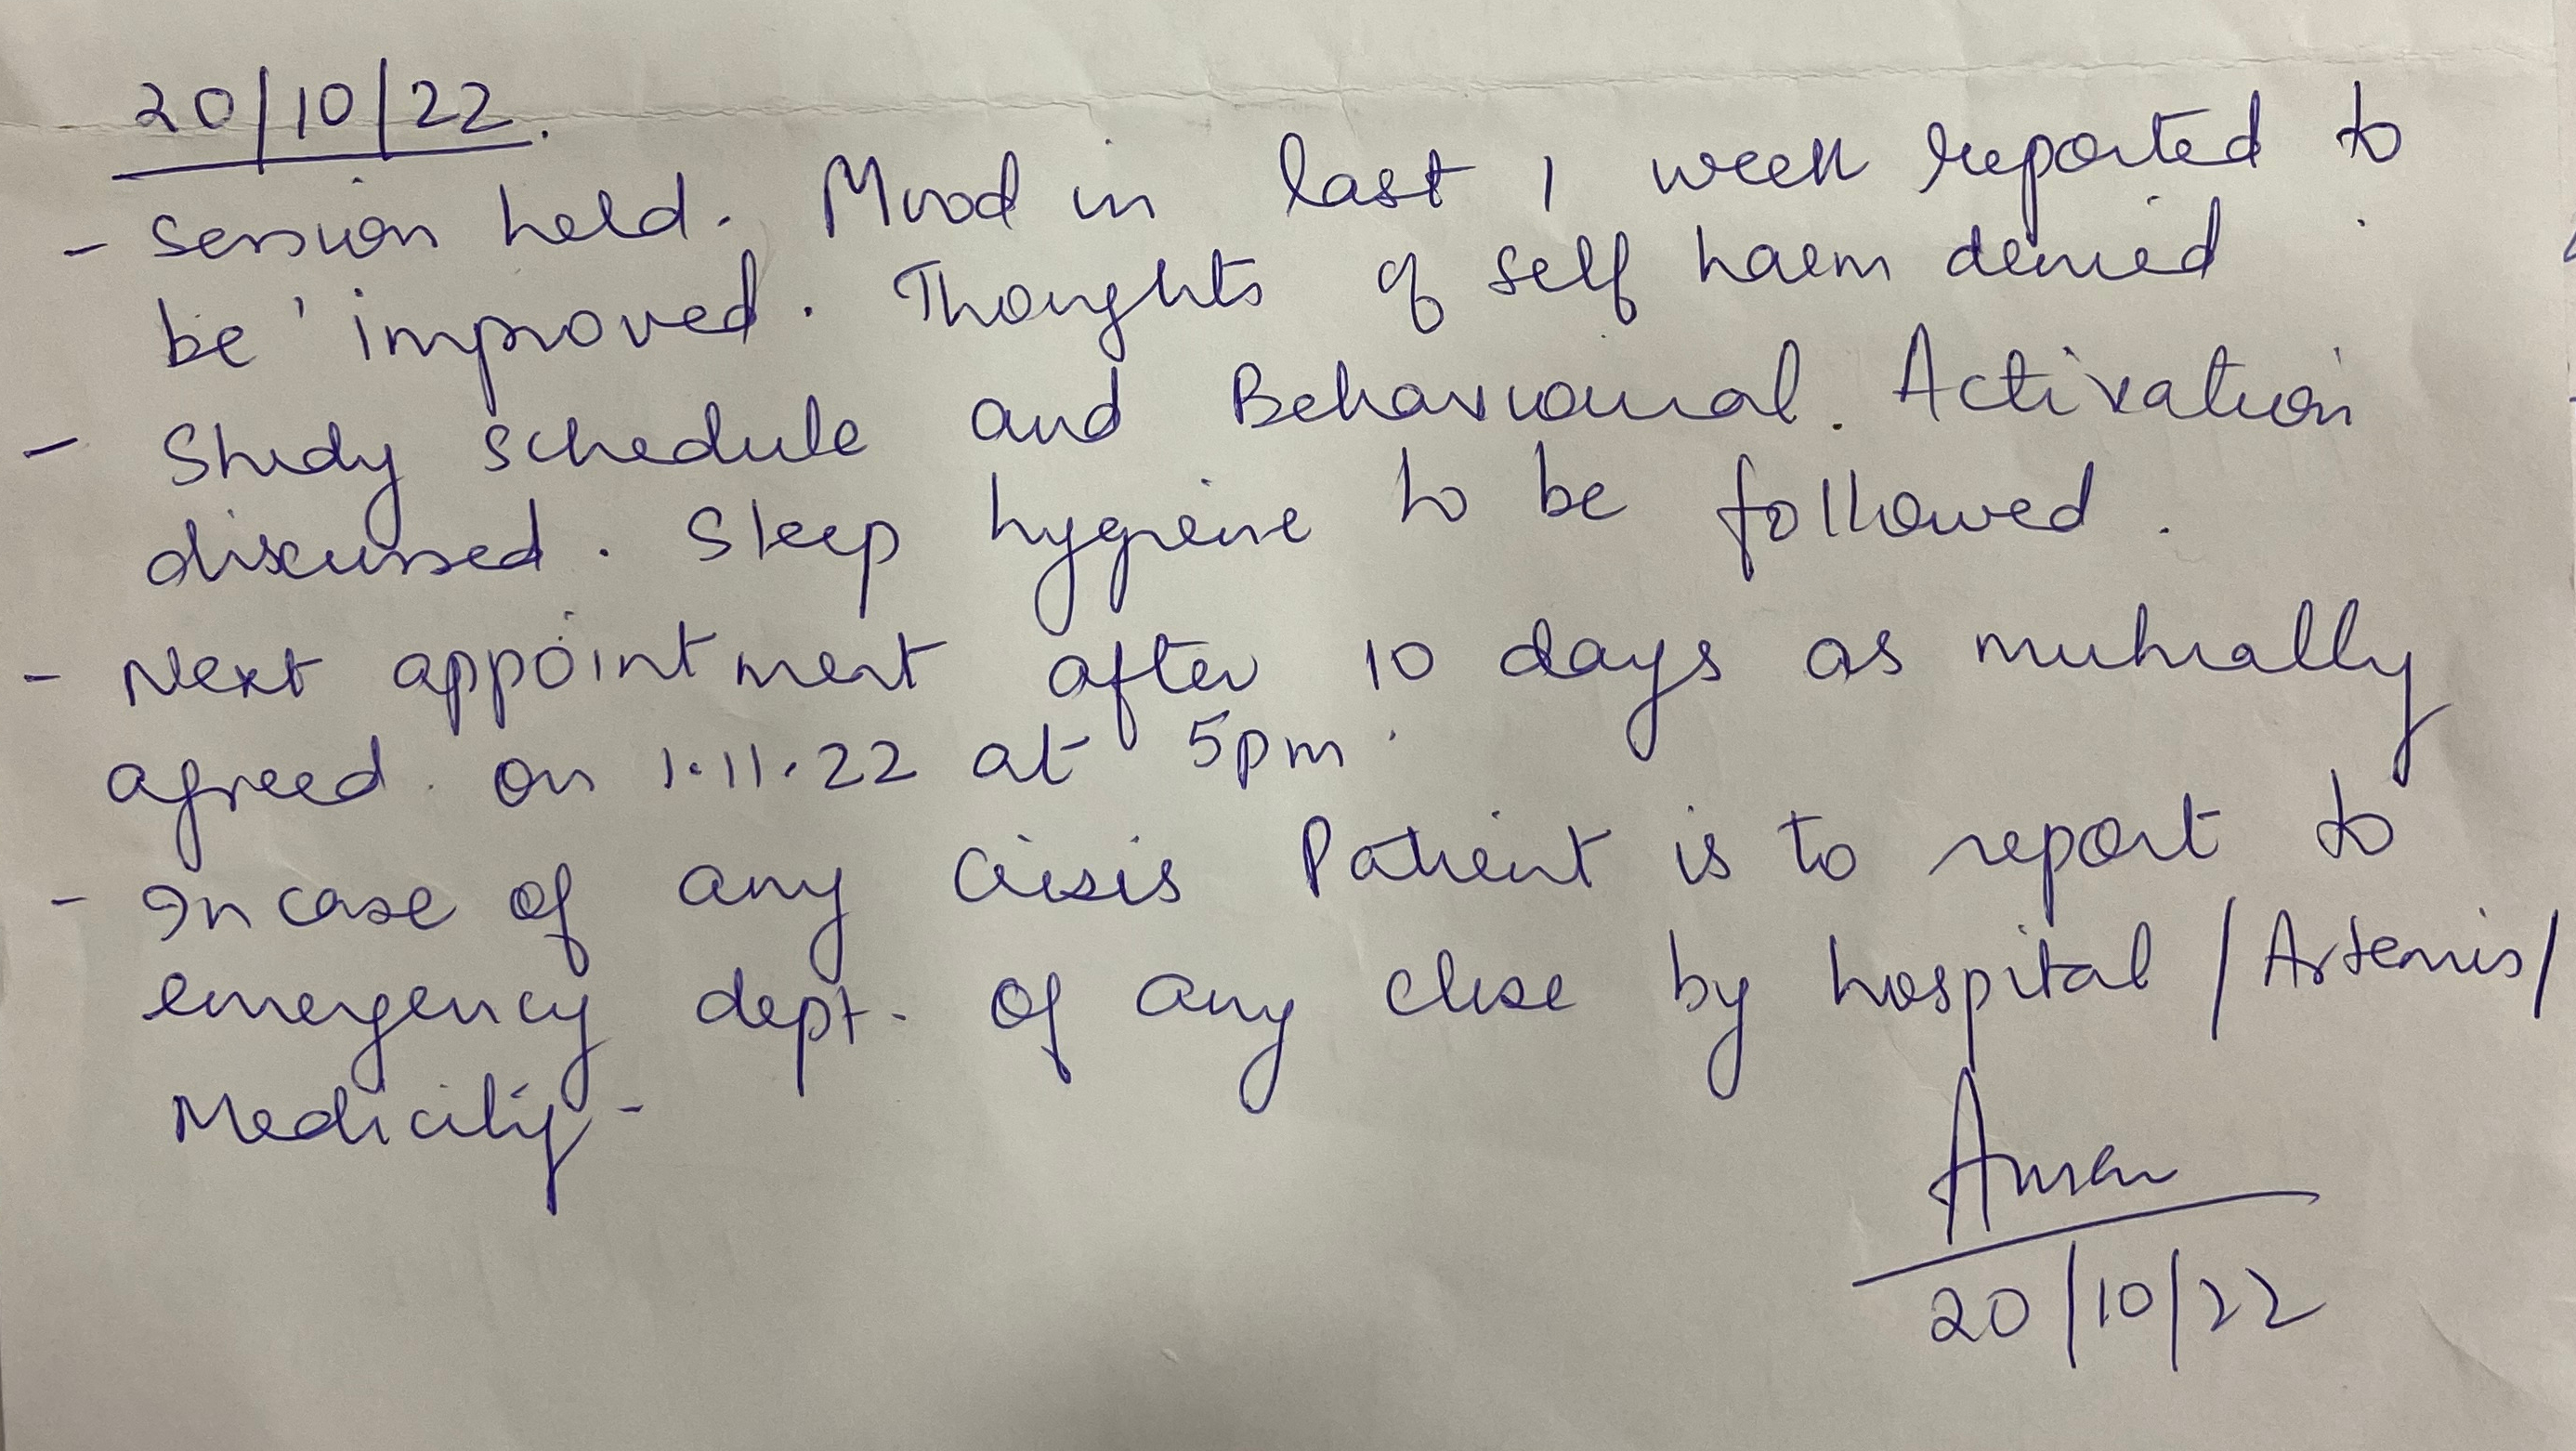 20/10/22.
- Session held. Mood in last 1 week reported to
be improved. Thoughts of self harm denied
- Study schedule and Behavioural Activation
discussed. Sleep hygiene to be followed.
- Next appointment after 10 days as mutually
agreed on 1.11.22 at 5pm.
- In case of any Crisis Patient is to report to
emergency dept. of any close by hospital / Artemis /
Medicity -
20/10/22